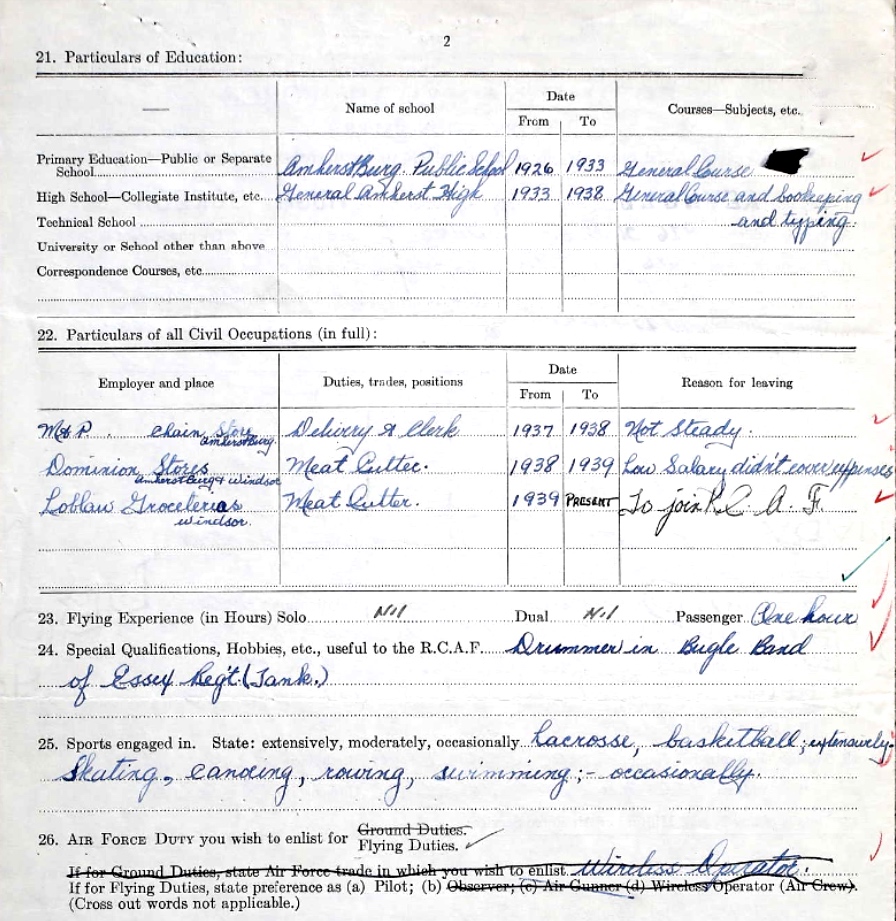 2
21. Particulars of Education:
Name of school
Date
Courses—Subjects, etc.
From To
Primary Education—Public or Separate
School Amherstburg. Public School 1926 1933 General Course
High School—Collegiate Institute, etc. General Amherst High 1933 1938 General Course and bookeeping
Technical School and typing.
University or School other than above
Correspondence Courses, etc.
22. Particulars of all Civil Occupations (in full):
Employer and place Duties, trades, positions
Date
Reason for leaving
From To
M & P. Chain Store Delivery & Clerk 1937 1938 Not Steady.
Amherstburg.
Dominion Stores Meat Cutter. 1938 1939 Low Salary didn't cover expenses
Amherstburg & Windsor
Loblaw Groceterias Meat Cutter. 1939 PRESENT To join R. C. A. F.
Windsor.
23. Flying Experience (in Hours) Solo Nil Dual Nil Passenger One hour
24. Special Qualifications, Hobbies, etc., useful to the R.C.A.F. Drummer in Bugle Band
of Essex Reg't. (Tank.)
25. Sports engaged in. State: extensively, moderately, occasionally Lacrosse, basketball; extensively.
Skating, canoeing, rowing, swimming;- occasionally.
26. AIR FORCE DUTY you wish to enlist for Ground Duties.
Flying Duties.
If for Ground Duties, state Air Force trade in which you wish to enlist Wireless Operator.
If for Flying Duties, state preference as (a) Pilot; (b) Observer; (c) Air Gunner (d) Wireless Operator (Air Crew).
(Cross out words not applicable.)